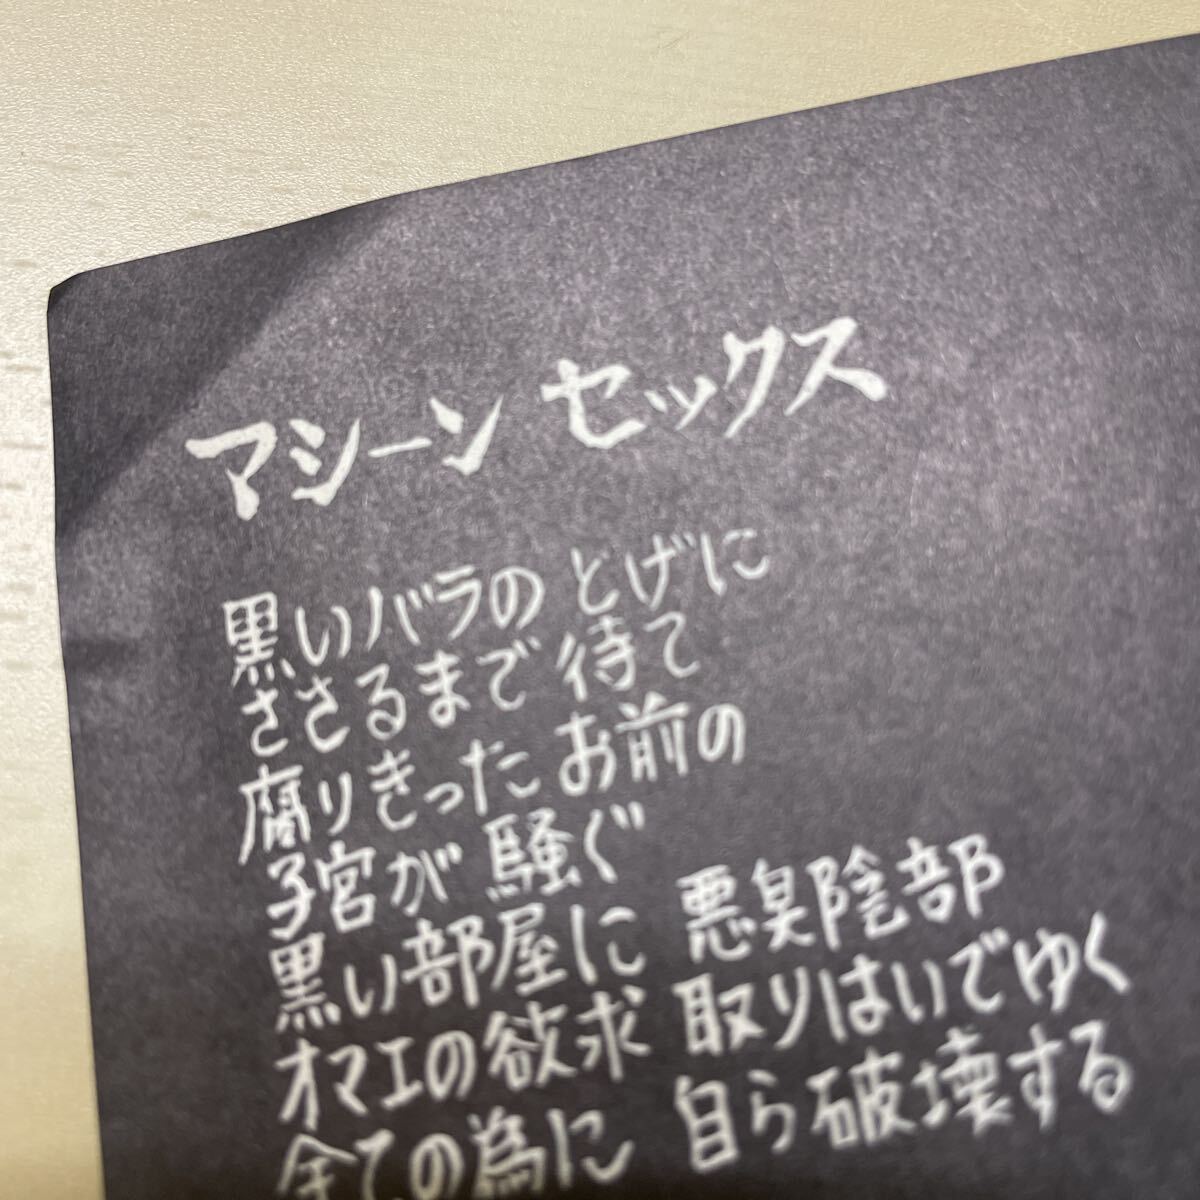 マシーン セックス
黒いバラの とげに
ささるまで 待て
腐りきった お前の
子宮が 騒ぐ
黒い部屋に 悪臭陰部
オマエの欲求 取りはいでゆく
全ての為に 自ら破壊する